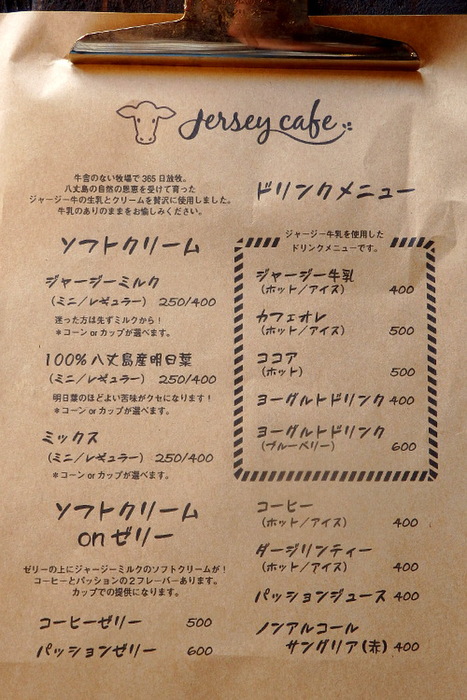 Jersey cafe
牛舎のない牧場で365日放牧。
八丈島の自然の恩恵を受けて育った
ジャージー牛の生乳とクリームを贅沢に使用しました。
牛乳のありのままをお愉しみください。
ソフトクリーム
ジャージーミルク
(ミニ/レギュラー) 250/400
迷った方は先ずミルクから!
*コーン or カップが選べます。
100%八丈島産明日葉
(ミニ/レギュラー) 250/400
明日葉のほどよい苦味がクセになります!
*コーン or カップが選べます。
ミックス
(ミニ/レギュラー) 250/400
*コーン or カップが選べます。
ソフトクリーム
onゼリー
ゼリーの上にジャージーミルクのソフトクリームが!
コーヒーとパッションの2フレーバーあります。
カップでの提供になります。
コーヒーゼリー 500
パッションゼリー 600
ドリンクメニュー
ジャージー牛乳を使用した
ドリンクメニューです。
ジャージー牛乳
(ホット/アイス) 400
カフェオレ
(ホット/アイス) 500
ココア
(ホット) 500
ヨーグルトドリンク 400
ヨーグルトドリンク
(ブルーベリー) 600
コーヒー
(ホット/アイス) 400
ダージリンティー
(ホット/アイス) 400
パッションジュース 400
ノンアルコール
サングリア(赤) 400